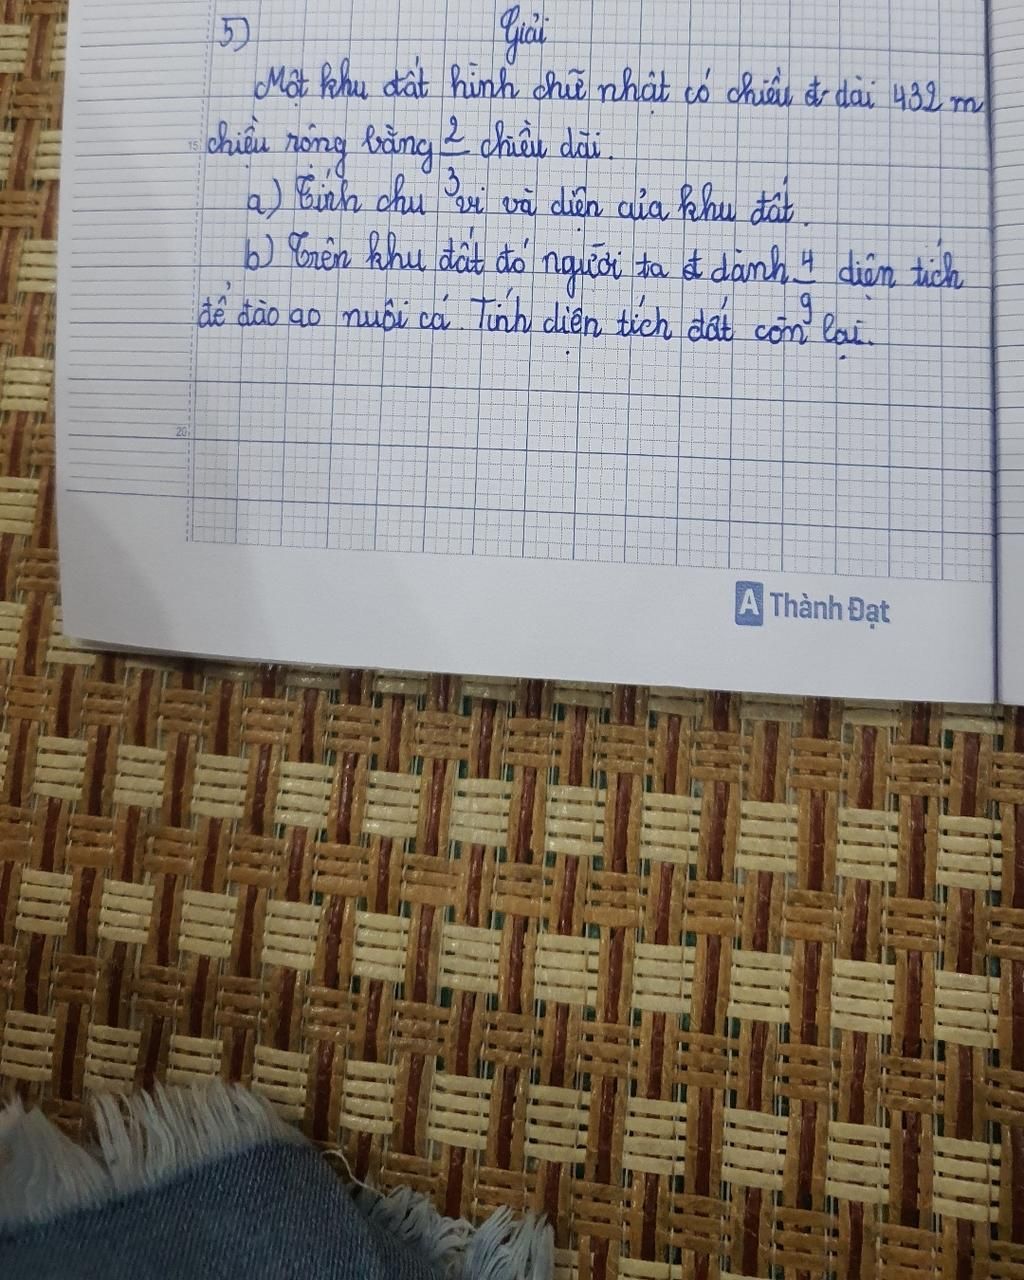 5) Giải
Một khu đất hình chữ nhật có chiều dài 432 m
chiều rộng bằng 2/3 chiều dài.
a) Tính chu vi và diện của khu đất.
b) Trên khu đất đó người ta dành 4/9 diện tích
để đào ao nuôi cá. Tính diện tích đất còn lại.
15
20
A Thành Đạt